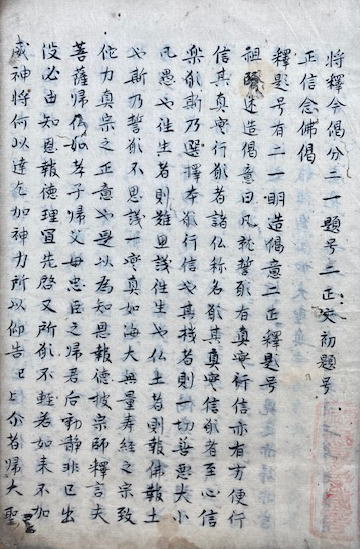 將釋今偈分二一題号二正文初題号
正信念佛偈
釋題号有二一明造偈意二正釋題号
祖 述造偈意曰凡就誓願有真實行信亦有方便行
信其真實行願者諸仏称名願其真實信願者至心信
樂願斯乃選擇本願行信也其機者則一切善悪大小
凡愚也往生者則難思議往生也仏土者則報佛報土
也斯乃誓願不思議一實真如海大無量寿経之宗致
他力真宗之正意也是以為知恩報徳披宗師釋言夫
菩薩歸仏如孝子歸父母忠臣之歸君后動静非己出
没必由知恩報徳理宜先啓又所願不輕若如来不加
威神將何以達乞加神力所以仰告已上尓者歸大聖